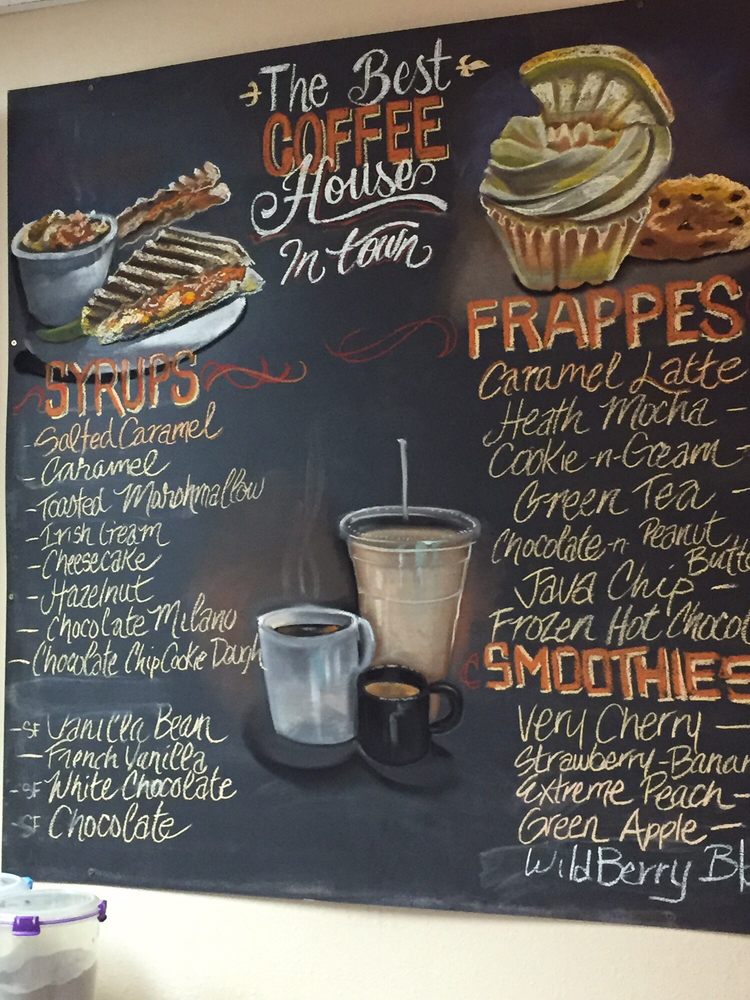 The Best
COFFEE
House
In town
SYRUPS
- Salted Caramel
- Caramel
- Toasted Marshmallow
- Irish Cream
- Cheesecake
- Hazelnut
- Chocolate Milano
- Chocolate Chip Cookie Dough
- SF Vanilla Bean
- French Vanilla
- SF White Chocolate
- SF Chocolate
FRAPPES
Caramel Latte
Heath Mocha -
Cookie-n-Cream -
Green Tea -
Chocolate-n Peanut
Butte
Java Chip -
Frozen Hot Chocol
SMOOTHIES
Very Cherry -
Strawberry-Banan
Extreme Peach -
Green Apple -
WildBerry Bl